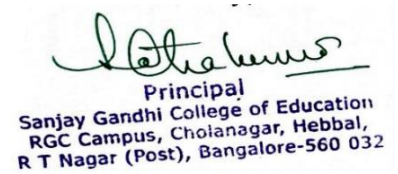 Principal
Sanjay Gandhi College of Education
RGC Campus, Cholanagar, Hebbal,
R T Nagar (Post), Bangalore-560 032